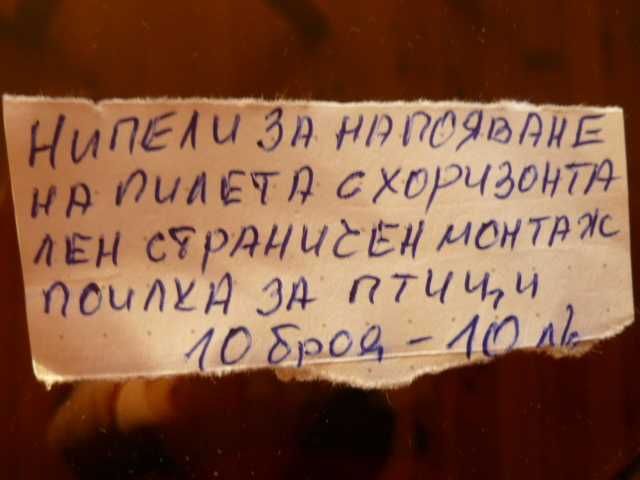 НИПЕЛИ ЗА НАПОЯВАНЕ
НА ПИЛЕТА С ХОРИЗОНТА
ЛЕН СТРАНИЧЕН МОНТАЖ
ПОИЛКА ЗА ПТИЦИ
10 броя - 10 лв